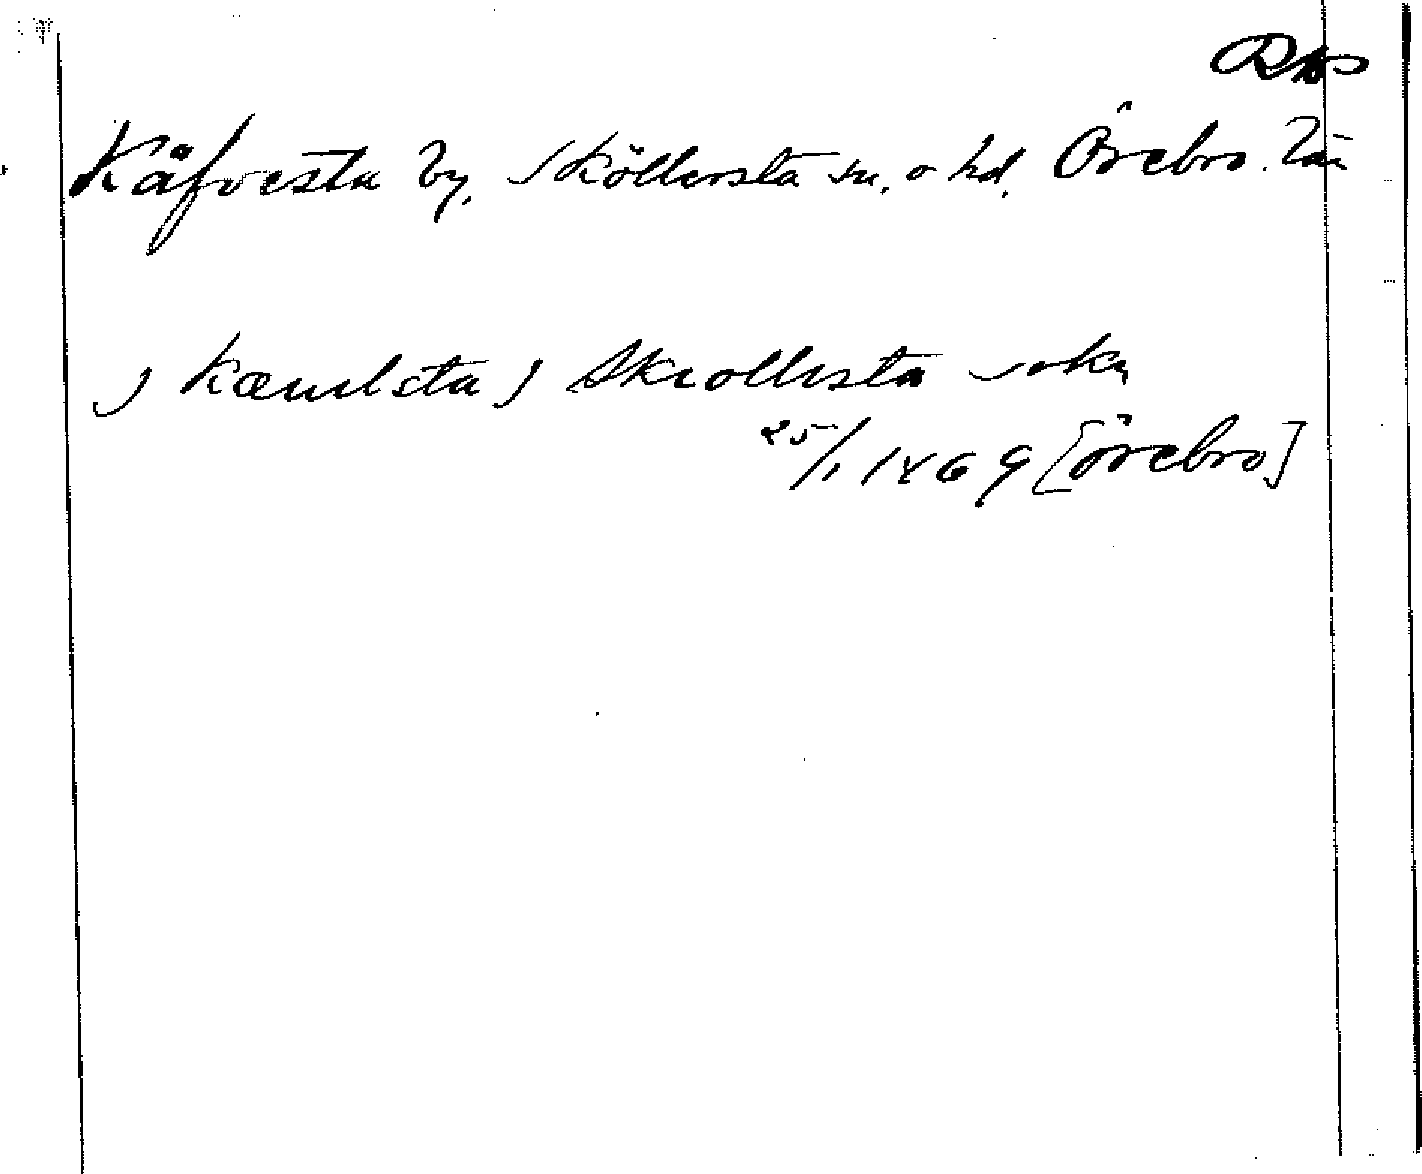 Käfvesta by, Sköllersta sn. o hd. Örebro län
j Kæwelsta j Skiollesta sokn
25/1 1469 [Örebro]